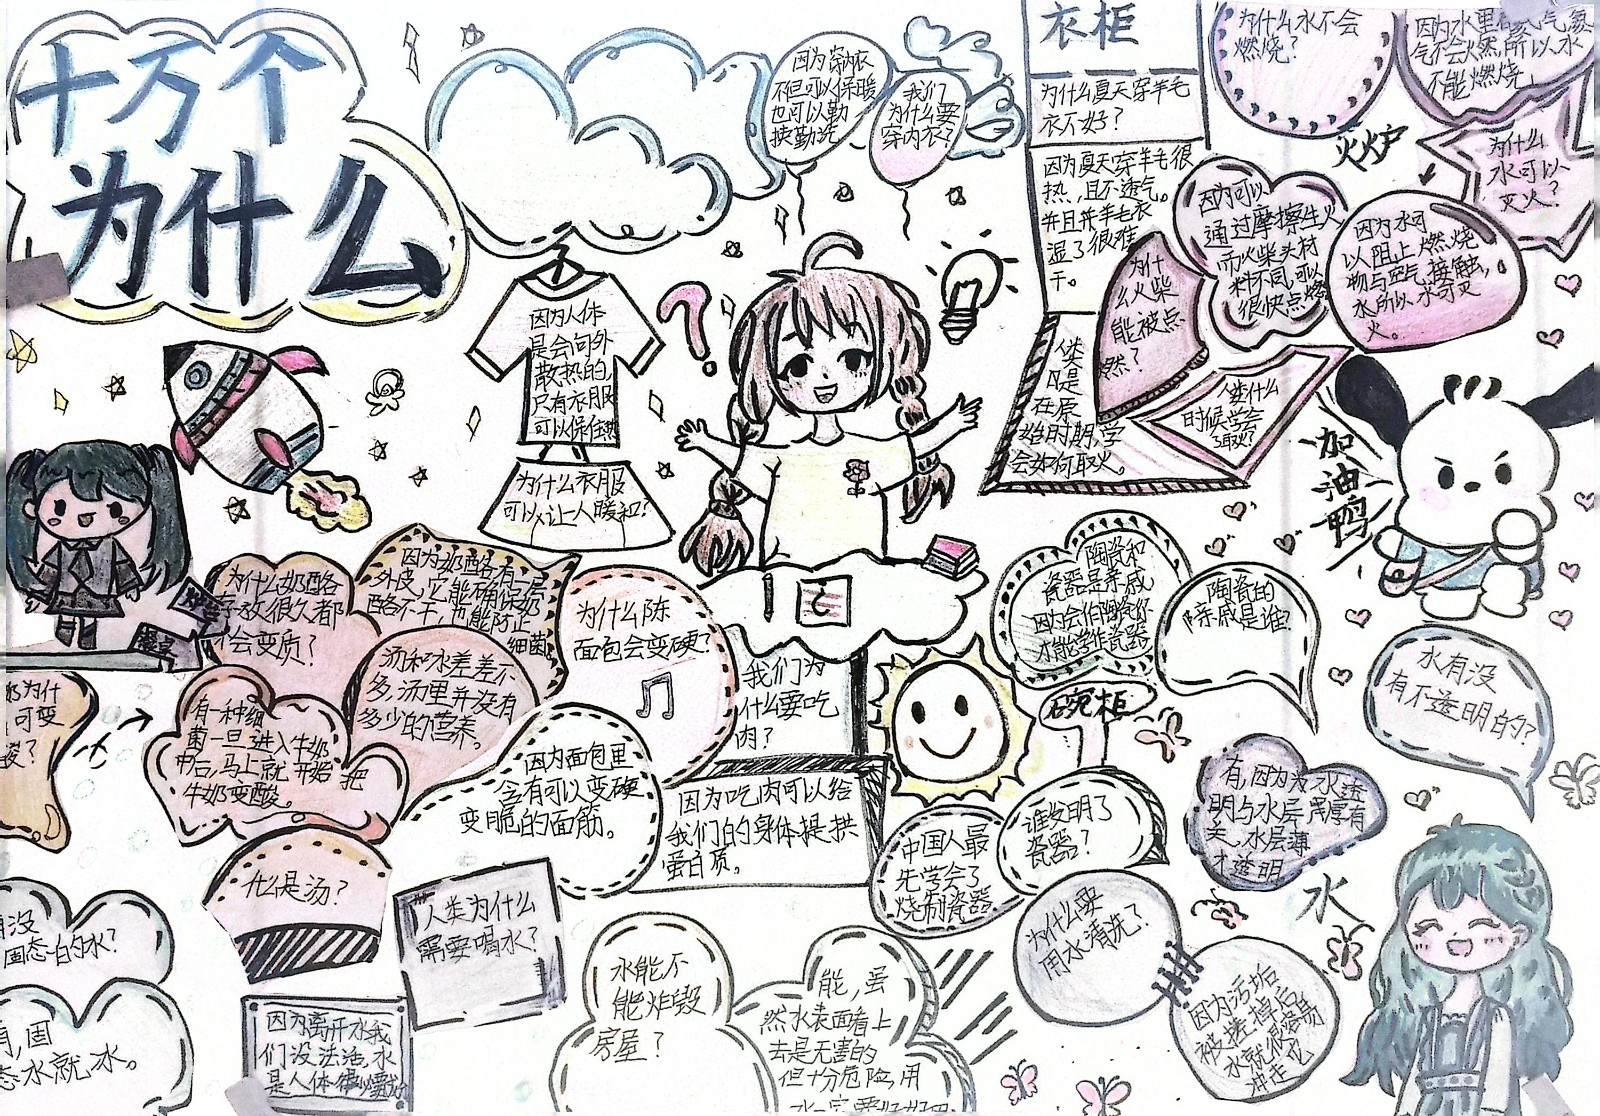 十万个
为什么
因为穿内衣
不但可以保暖
也可以勤
换勤洗
我们
为什么要
穿内衣?
衣柜
为什么夏天穿羊毛
衣不好?
因为夏天穿羊毛很
热,且不透气。
并且羊毛衣
湿了很难
干。
为什么水不会
燃烧?
气不会燃,所以水
不能燃烧
火炉
为什么
水可以
灭火?
因为水可
以阻止燃烧
物与空气接触,
火。
因为可以
通过摩擦生火
而火柴头材
料不同,可以
很快点燃
为什
么火柴
能被点
燃?
人类什么
时候学会
了取火?
人类
是
在原
始时期,学
会如何取火。
加油鸭
因为人体
是会向外
散热的,
只有衣服
可以保住热
为什么衣服
可以让人暖和?
为什么奶酪
存放很久都
不会变质?
因为奶酪有一层
外皮,它能确保奶
酪不干,也能防止
细菌
为什么陈
面包会变硬?
因为面包里
含有可以变硬
变脆的面筋。
我们为
什么要吃
肉?
因为吃肉可以给
我们的身体提拱
蛋白质。
奶为什
可变
酸?
有一种细
菌一旦进入牛奶
中后,马上就开始把
牛奶变酸。
汤和水差差不
多,汤里并没有
多少的营养。
什么是汤?
人类为什么
需要喝水?
因为离开水我
们没法活,水
没
固态的水?
有,固
态水就冰。
水能不
能炸毁
房屋?
能,虽
然水表面看上
去是无害的
但十分危险,用
陶瓷和
瓷器是亲戚
陶瓷的
亲戚是谁?
碗柜
谁发明了
瓷器?
中国人最
先学会了
烧制瓷器
水有没
有不透明的?
有,因为水透
明与水层厚有
关,水层薄
才透明
水
为什么要
用水清洗?
因为污垢
被接掉后
水就很容易
冲走